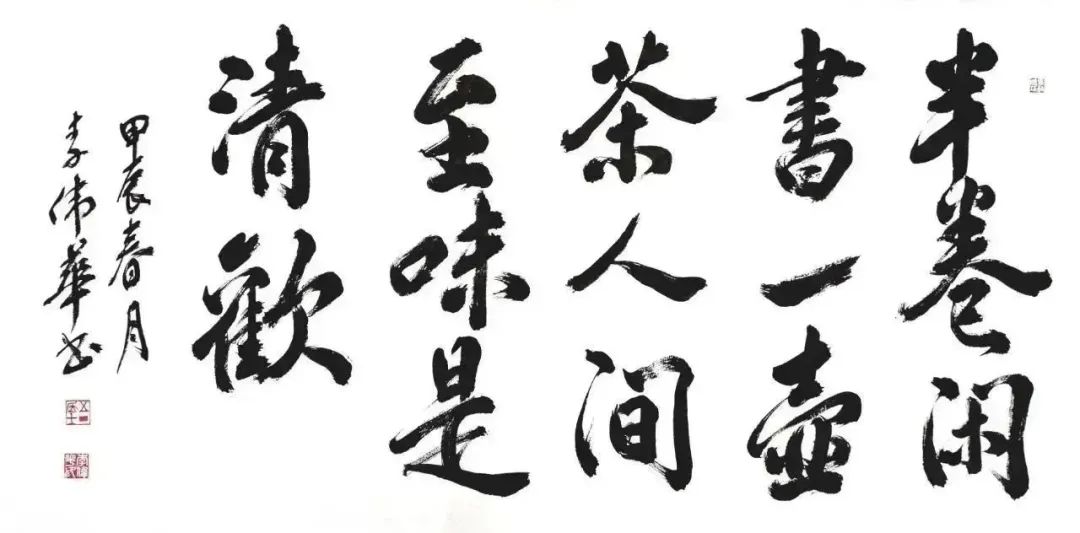 半卷闲
書一壺
茶人间
至味是
清歡
甲辰春月
李伟華书